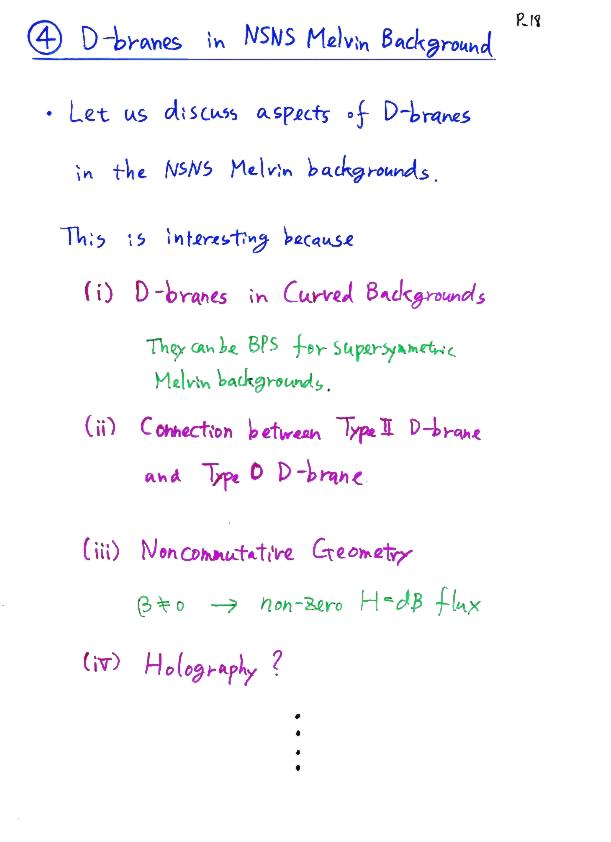 P.18
④ D-branes in NSNS Melvin Background
• Let us discuss aspects of D-branes
in the NSNS Melvin backgrounds.
This is interesting because
(i) D-branes in Curved Backgrounds
They can be BPS for supersymetric
Melvin backgrounds.
(ii) Connection between Type II D-brane
and Type 0 D-brane
(iii) Noncommutative Geometry
β≠0 → non-zero H=dB flux
(iv) Holography?